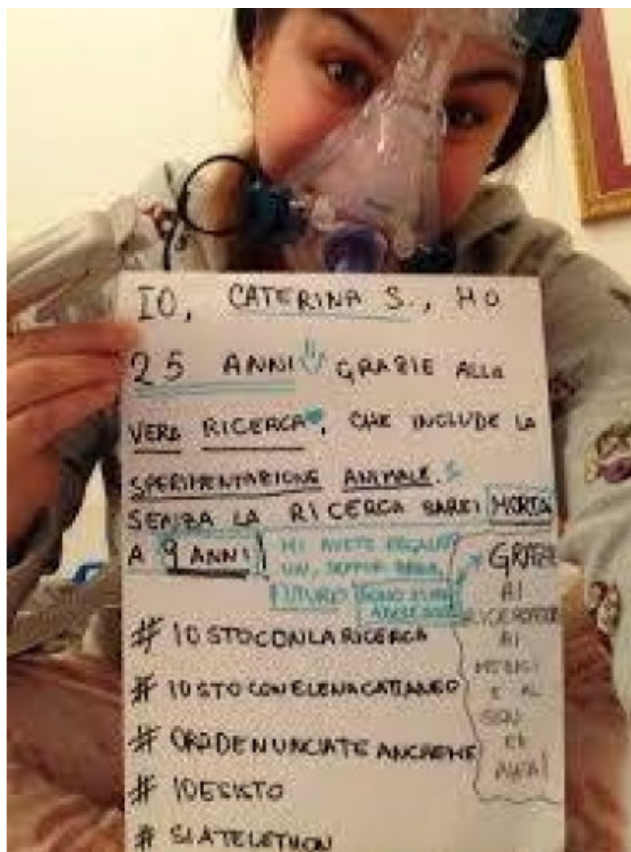 IO, CATERINA S., HO
25 ANNI GRAZIE ALLA
VERA RICERCA, CHE INCLUDE LA
SPERIMENTAZIONE ANIMALE.
SENZA LA RICERCA SAREI MORTA
A 9 ANNI!
MI AVETE REGALATO
UN,
FUTURO
GRAZIE
AI
RICERCATORI
AI
MEDICI
E AL
#IOSTOCONLARICERCA
#IOSTOCONELENACATTANEO
#ORADENUNCIATEANCHEME
#IOESISTO
#SIATELETHON